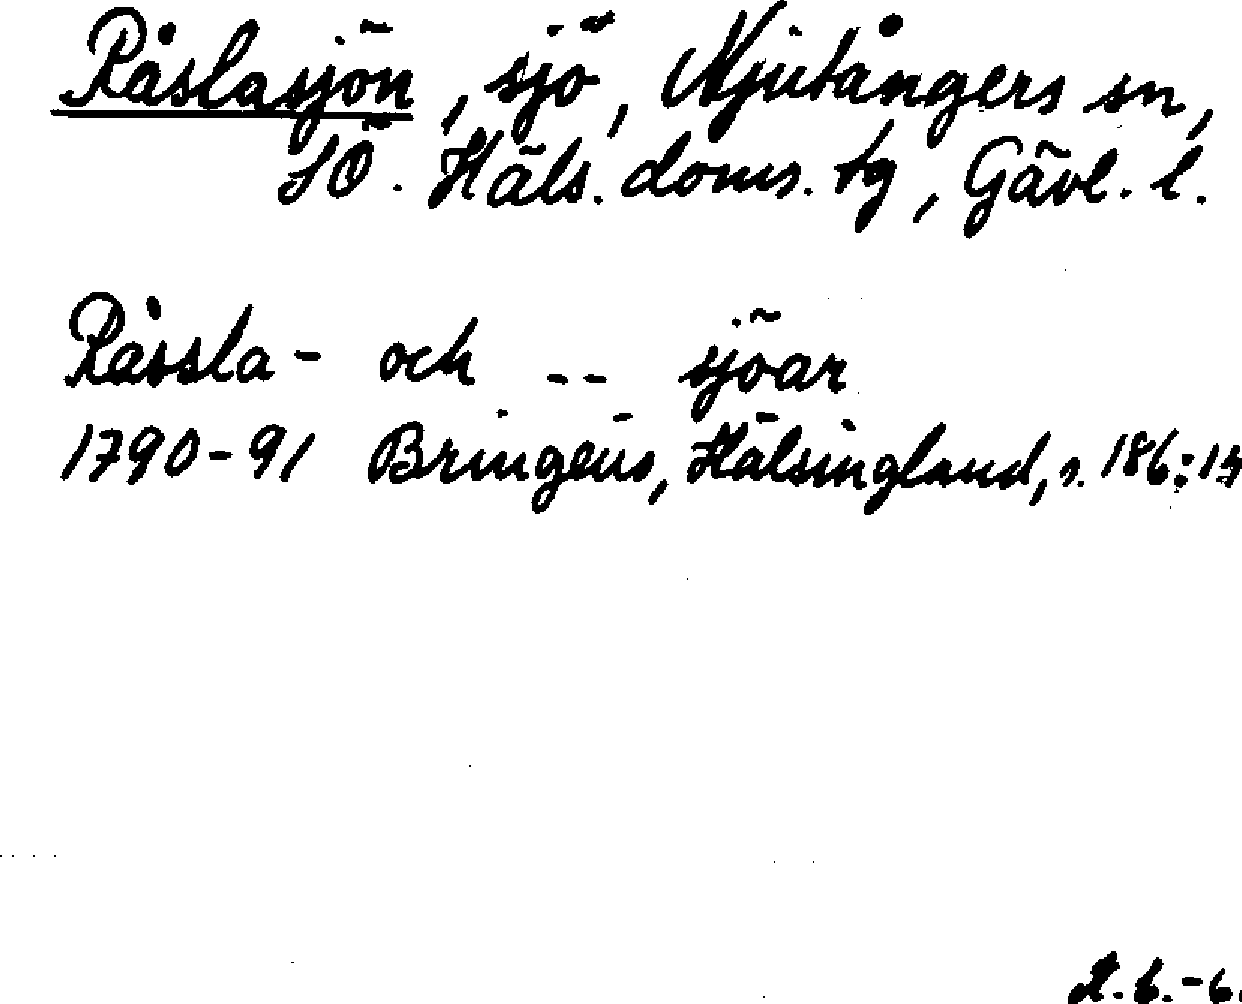 Råslasjön, sjö, Njutångers sn,
SÖ. Häls. doms. tg, Gävl. l.
Råssla- och -- sjöar
1790-91 Bringéus, Hälsingland, s. 186: